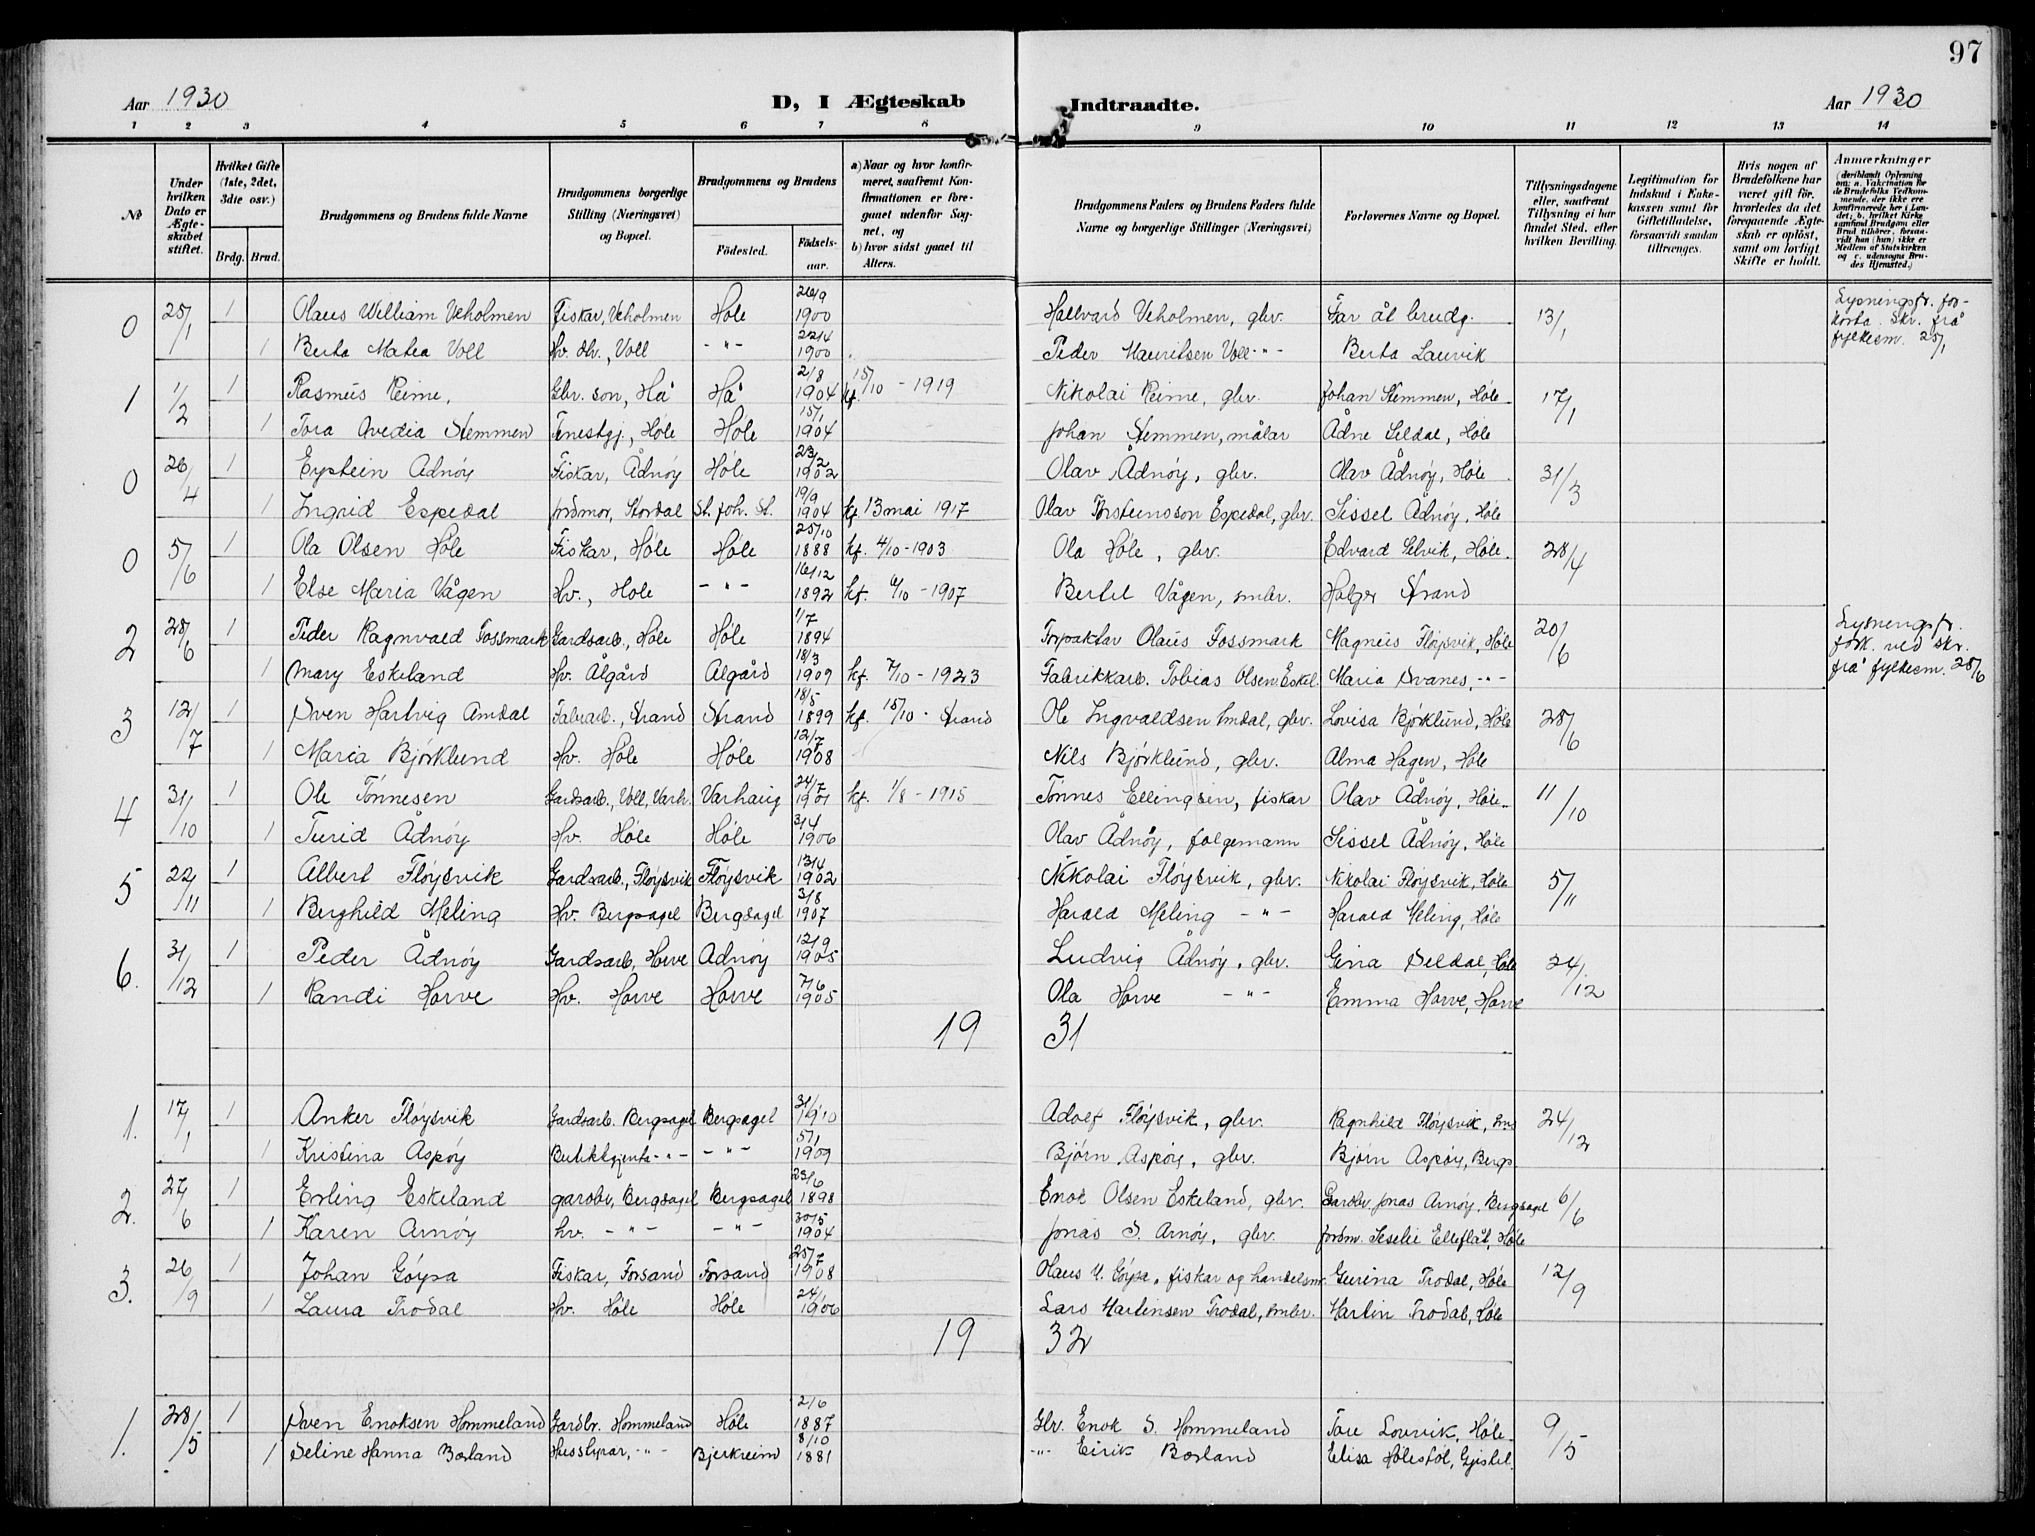 97
Aar 1930 D, I Ægteskab Indtraadte. Aar 1930
1 2 3 4 5 6 7 8 9 10 11 12 13 14
No
Under hvilken Dato er Ægteskabet stiftet.
Hvilket Gifte (1ste, 2det, 3die osv.)
Brdg. Brud.
Brudgommens og Brudens fulde Navne
Brudgommens borgerlige Stilling (Næringsvei) og Bopæl.
Brudgommens og Brudens
Fødested. Fødselsaar.
a) Naar og hvor konfirmeret, saafremt Konfirmationen er foregaaet udenfor Sognet, og
b) hvor sidst gaaet til Alters.
Brudgommens Faders og Brudens Faders fulde Navne og borgerlige Stillinger (Næringsvei)
Forlovernes Navne og Bopæl.
Tillysningsdagene eller, saafremt Tillysning ei har fundet Sted, efter hvilken Bevilling.
Legitimation for Indskud i Enkekassen samt for Giftetilladelse, forsaavidt saadan tiltrænges.
Hvis nogen af Brudefolkene har været gift før, hvorledes da det foregaaende Ægteskab er opløst, samt om lovligt Skifte er holdt.
Anmærkninger
0 25/1 1 Olaus William Veholmen Fiskar, Veholmen Høle 26/9 1900 Hallvard Veholmen, gbr. Far åt brudg. 13/1 Lysningsfr. forkorta. Skr. frå fylkesm. 25/1
1 Berta Matea Voll Hv. dtr., Voll -"- 22/4 1900 Peder Mauritsen Voll -"- Berta Lauvik
1 1/2 1 Rasmus Reime, Gbr. son, Hå Hå 2/8 1904 kf. 15/10 - 1919 Nikolai Reime, gbr. Johan Stemmen, Høle 17/1
1 Tora Avedia Stemmen Tenestgj., Høle Høle 15/1 1904 Johan Stemmen, målar Ådne Seldal, Høle
0 26/4 1 Eystein Ådnøy Fiskar, Ådnøy Høle 23/2 1902 Olav Ådnøy, gbr. Olav Ådnøy, Høle 31/3
1 Ingrid Espedal Jordmor, Stordal St. Joh. St. 19/9 1904 kf. 13 mai 1917 Olav Torsteinsson Espedal, gbr. Sissel Ådnøy, Høle
0 5/6 1 Ola Olsen Høle Fiskar, Høle Høle 25/10 1888 kf. 4/10 - 1903 Ola Høle, gbr. Edvard Selvik, Høle. 28/4
1 Else Maria Vågen Hv., Høle -"- 16/12 1892 kf. 6/10 - 1907 Bertel Vågen, smbr. Holger Strand
2 28/6 1 Peder Ragnvald Fossmark Gardsarb., Høle Høle 1/7 1894 Forpaktar Olaus Fossmark Magnus Fløysvik, Høle 20/6 Lysningsfr. fork. ved skr. frå fylkesm. 28/6
1 Mary Eskeland Hv. Ålgård Ålgård 18/3 1909 kf. 7/10 - 1923 Fabrikkarb. Tobias Olsen Eskel. Maria Svanes, -"-
3 12/7 1 Sven Hartvig Amdal Fabrarb., Strand Strand 18/5 1899 kf. 15/10 - Strand Ole Ingvaldsen Amdal, gbr. Lovisa Bjørklund, Høle 28/6
1 Maria Bjørklund Hv. Høle Høle 12/7 1908 Nils Bjørklund, gbr. Alma Hagen, Høle
4 31/10 1 Ole Tønnesen Gardsarb., Voll, Varh. Varhaug 24/7 1901 kf. 1/8 - 1915 Tønnes Ellingsen, fiskar Olav Ådnøy, Høle 11/10
1 Turid Ådnøy Hv. Høle Høle 3/4 1906 Olav Ådnøy, folgemann Sissel Ådnøy, Høle
5 22/11 1 Albert Fløysvik Gardsarb., Fløysvik Fløysvik 13/4 1902 Nikolai Fløysvik, gbr. Nikolai Fløysvik, Høle 5/11
1 Berghild Meling Hv. Bergsagel Bergsagel 3/8 1907 Harald Meling -"- Harald Meling, Høle
6. 31/12 1 Peder Ådnøy Gardsarb, Horve Adnøy 12/9 1905 Ludvig Ådnøy, gbr. Gina Seldal, Høle 24/12
1 Randi Horve Hv. Horve Horve 7/6 1905 Ola Horve -"- Emma Horve, Horve
19 31
1. 17/1 1 Anker Fløysvik Gardsarb. Bergsagel Bergsagel 31/1 1910 Adolf Fløysvik, gbr. Ragnhild Fløysvik, 24/12
1 Kristina Aspøy Butikkgjenta -"- -"- 5/1 1909 Bjørn Aspøy, gbr. Bjørn Aspøy, Bergs.
2. 27/6 1 Erling Eskeland gardbr, Bergsagel Bergsagel 23/6 1898 Enok Olsen Eskeland, gbr. Gardbr. Jonas Arnøy, Bergsagel 6/6
1 Karen Arnøy hv. -"- -"- 30/5 1904 Jonas S. Arnøy, gbr. Jordm. Elleflåt, Høle
3. 26/9 1 Johan Gøysa Fiskar, Forsand Forsand 25/7 1908 Olaus U. Gøysa, fiskar og handelsm. Gurina Trodal, Høle 12/9
1 Laura Trodal Hv. Høle Høle 24/1 1906 Lars Martinsen Trodal, smbr. Martin Trodal, Høle
19 32
1. 28/5 1 Sven Enoksen Hommeland Gardbr. Hommeland Høle 2/6 1887 Gbr. Enok S. Hommeland Tore Lauvik, Høle 9/5
1 Seline Hanna Børland Husstyrar, -"- Bjerkreim 8/10 1881 -"- Eirik Børland Elisa Hølestøl, Gjestel.